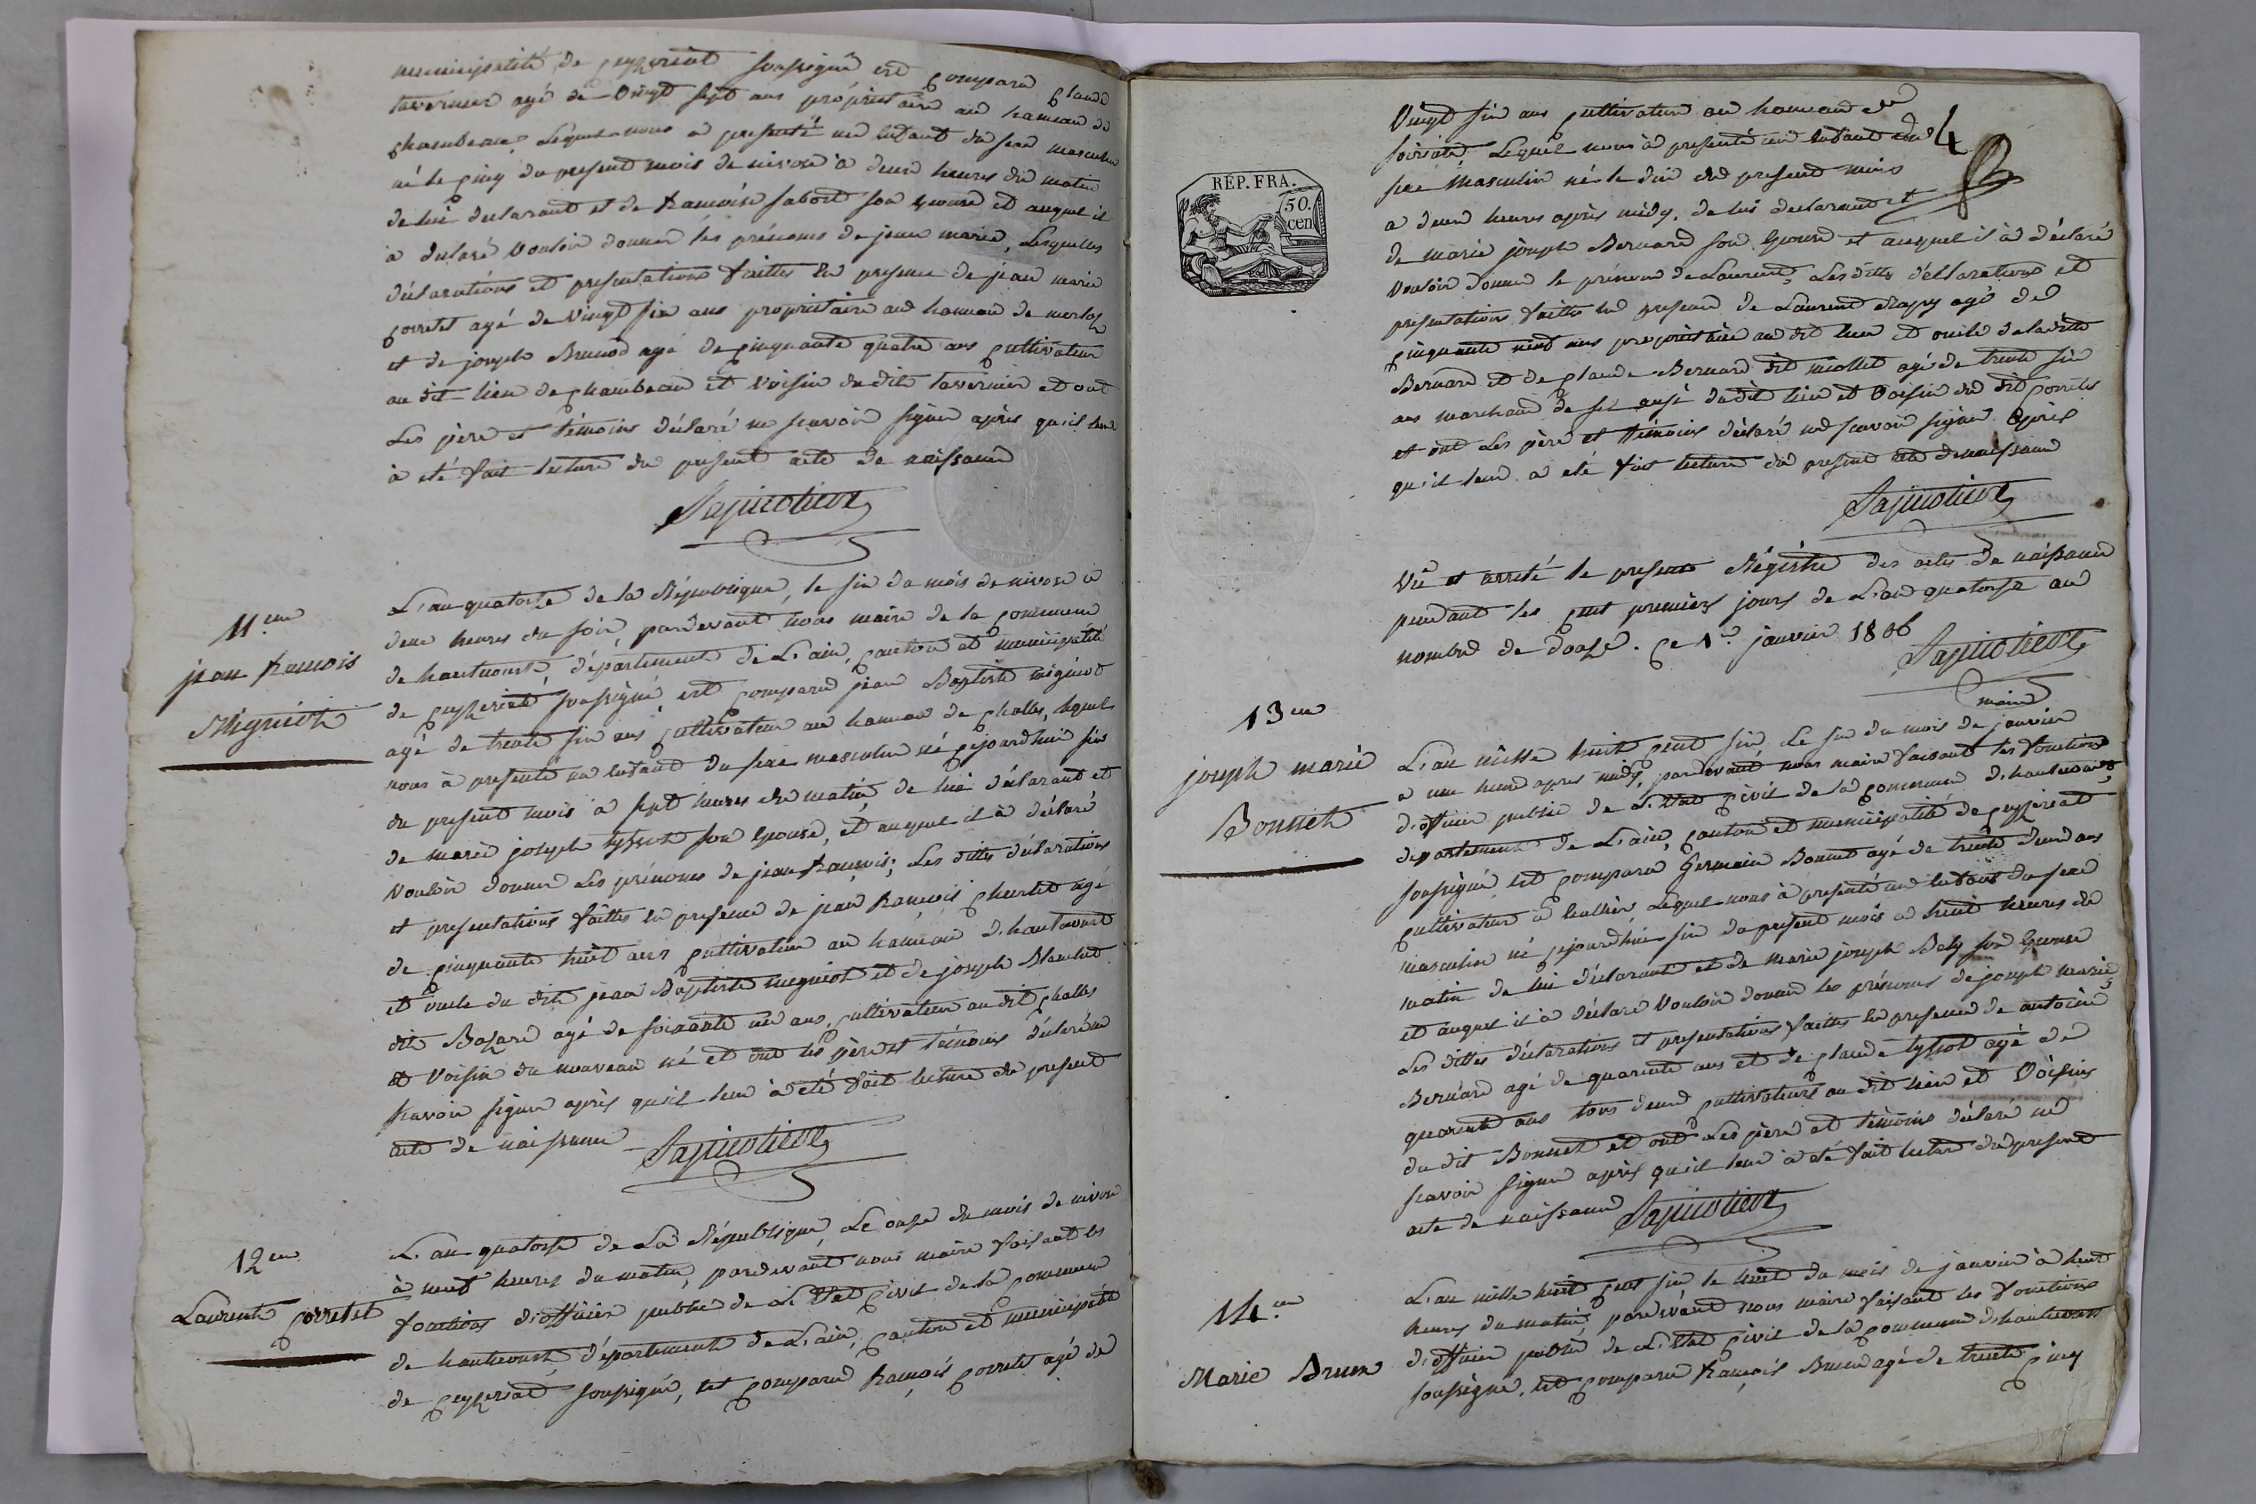 municipalité de ceyzeriat soussigné est comparu claude
tavernier agé de vingt sept ans propriétaire au hameau de
chambeau lequel nous a presenté un enfant du sexe masculin
né le cinq du present mois de nivose à deux heures du matin
de lui declarant et de francoise sabot son epouse et auquel il
à declaré vouloir donner les prénoms de jean marie, Lesquelles
déclarations et presentations faittes en presence de jean marie
corretet agé de vingt six ans propriétaire au hameau de
et de joseph Brunod agé de cinquante quatre ans cultivateur
au dit lieu de chambeau et voisin du dit tavernier et ont
Les père et témoins déclaré ne scavoir signer après qu'il leur
à eté fait lecture du present acte de naissance
11.em
jean francois
Migniot
L'an quatorze de la République, le six du mois de nivose à
deux heures du soir, pardevant nous maire de la commune
de hautecourt, département de L'ain, canton et municipalité
de ceyzeriat soussigné, est comparu jean Baptiste migniot
agé de trente six ans cultivateur au hameau de challes, lequel
nous à presenté un enfant du sexe masculin né cejourd'hui six
du present mois a sept heures du matin de lui déclarant et
de marie joseph tyssot son epouse, et auquel il à déclaré
vouloir donner Les prénoms de jean francois, Les dittes déclarations
et presentations faittes en presence de jean francois agé
de cinquante huit ans cultivateur au hameau d'hautecourt
et oncle du dit jean Baptiste migniot et de joseph Blanchet
dit Bozard agé de soixante un ans, cultivateur au dit challes
et voisin du nouveau né et ont les père et témoins déclaré ne
scavoir signer après qu'il leur à eté fait lecture du present
acte de naissance
12.em
Laurent corretet
L'an quatorze de La République, Le onze du mois de nivose
à neuf heures du matin, pardevant nous maire faisant les
fonctions d'officier public de L'Etat civil de la commune
de hautecourt, département de L'ain, canton et municipalité
de ceyzeriat soussigné, est comparu francois corretet agé de
4
REP. FRA.
50.
cen
Vingt six ans cultivateur au hameau de
Lequel nous à presenté un enfant du
sexe Masculin né le dix du present mois
a deux heures après midy, de lui declarant et
de marie joseph Bernard son epouse et auquel il à déclaré
vouloir donner le prénom de Laurent, Les dittes déclarations et
presentations faittes en presence de Laurent agé de
cinquante neuf ans propriétaire au dit lieu et oncle de laditte
Bernard et de claude Bernard dit micollet agé de trente six
ans marchand de sel aussi du dit lieu et voisin du dit corretet
et ont Les père et témoins déclaré ne scavoir signer après
qu'il leur a eté fait lecture du present acte de naissance
Vu et arreté le present Régistre des actes de naissance
pendant les cent premiers jours de L'an quatorze au
nombre de douze. Ce 1.er janvier 1806
maire
13.em
joseph marie
Bonnet
L'an mille huit cent six Le six du mois de janvier
a une heure apres midy, pardevant nous maire faisant les fonctions
d'officier public de L'Etat civil de la commune d'hautecourt
departement de L'ain, canton et municipalité de ceyzeriat
soussigné, est comparu Germain Bonnet agé de trente deux ans
cultivateur à Lequel nous à presenté un enfant du sexe
masculin né cejourdhui six du present mois a huit heures du
matin de lui déclarant et de marie joseph Bely son epouse
et auquel il à déclaré vouloir donner les prénoms de joseph marie
Les dittes déclarations et presentations faittes en presence de antoine
Bernard agé de quarente ans et de claude tyssot agé de
quarente ans tous deux cultivateurs au dit lieu et voisins
du dit Bonnet et ont Les père et témoins déclaré ne
scavoir signer après qu'il leur à eté fait lecture du present
acte de naissance
14.em
Marie Brun
L'an mille huit cent six le huit du mois de janvier à huit
heures du matin, pardevant nous maire faisant les fonctions
d'officier public de L'Etat civil de la commune d'hautecourt
soussigné, est comparu francois Brun agé de trente cinq